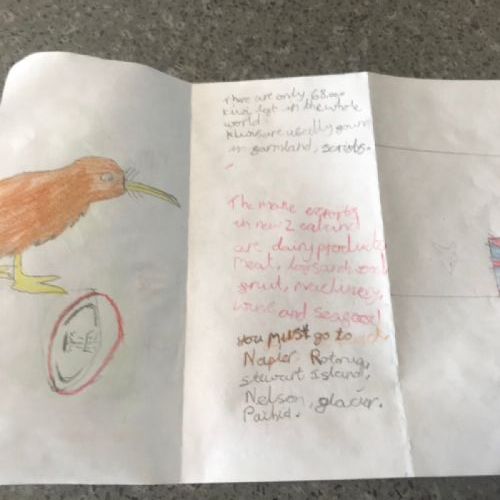 There are only 68,000
kiwi left in the whole
world!
Kiwis are usually found
in farmland, scrubs.
The make exports
in new Zealand
are dairy products
meat, logs and wood
fruit, machinery,
wine and seafood
you must go to
Napier Rotorua,
Stewart Island,
Nelson, glacier.
Paihia.